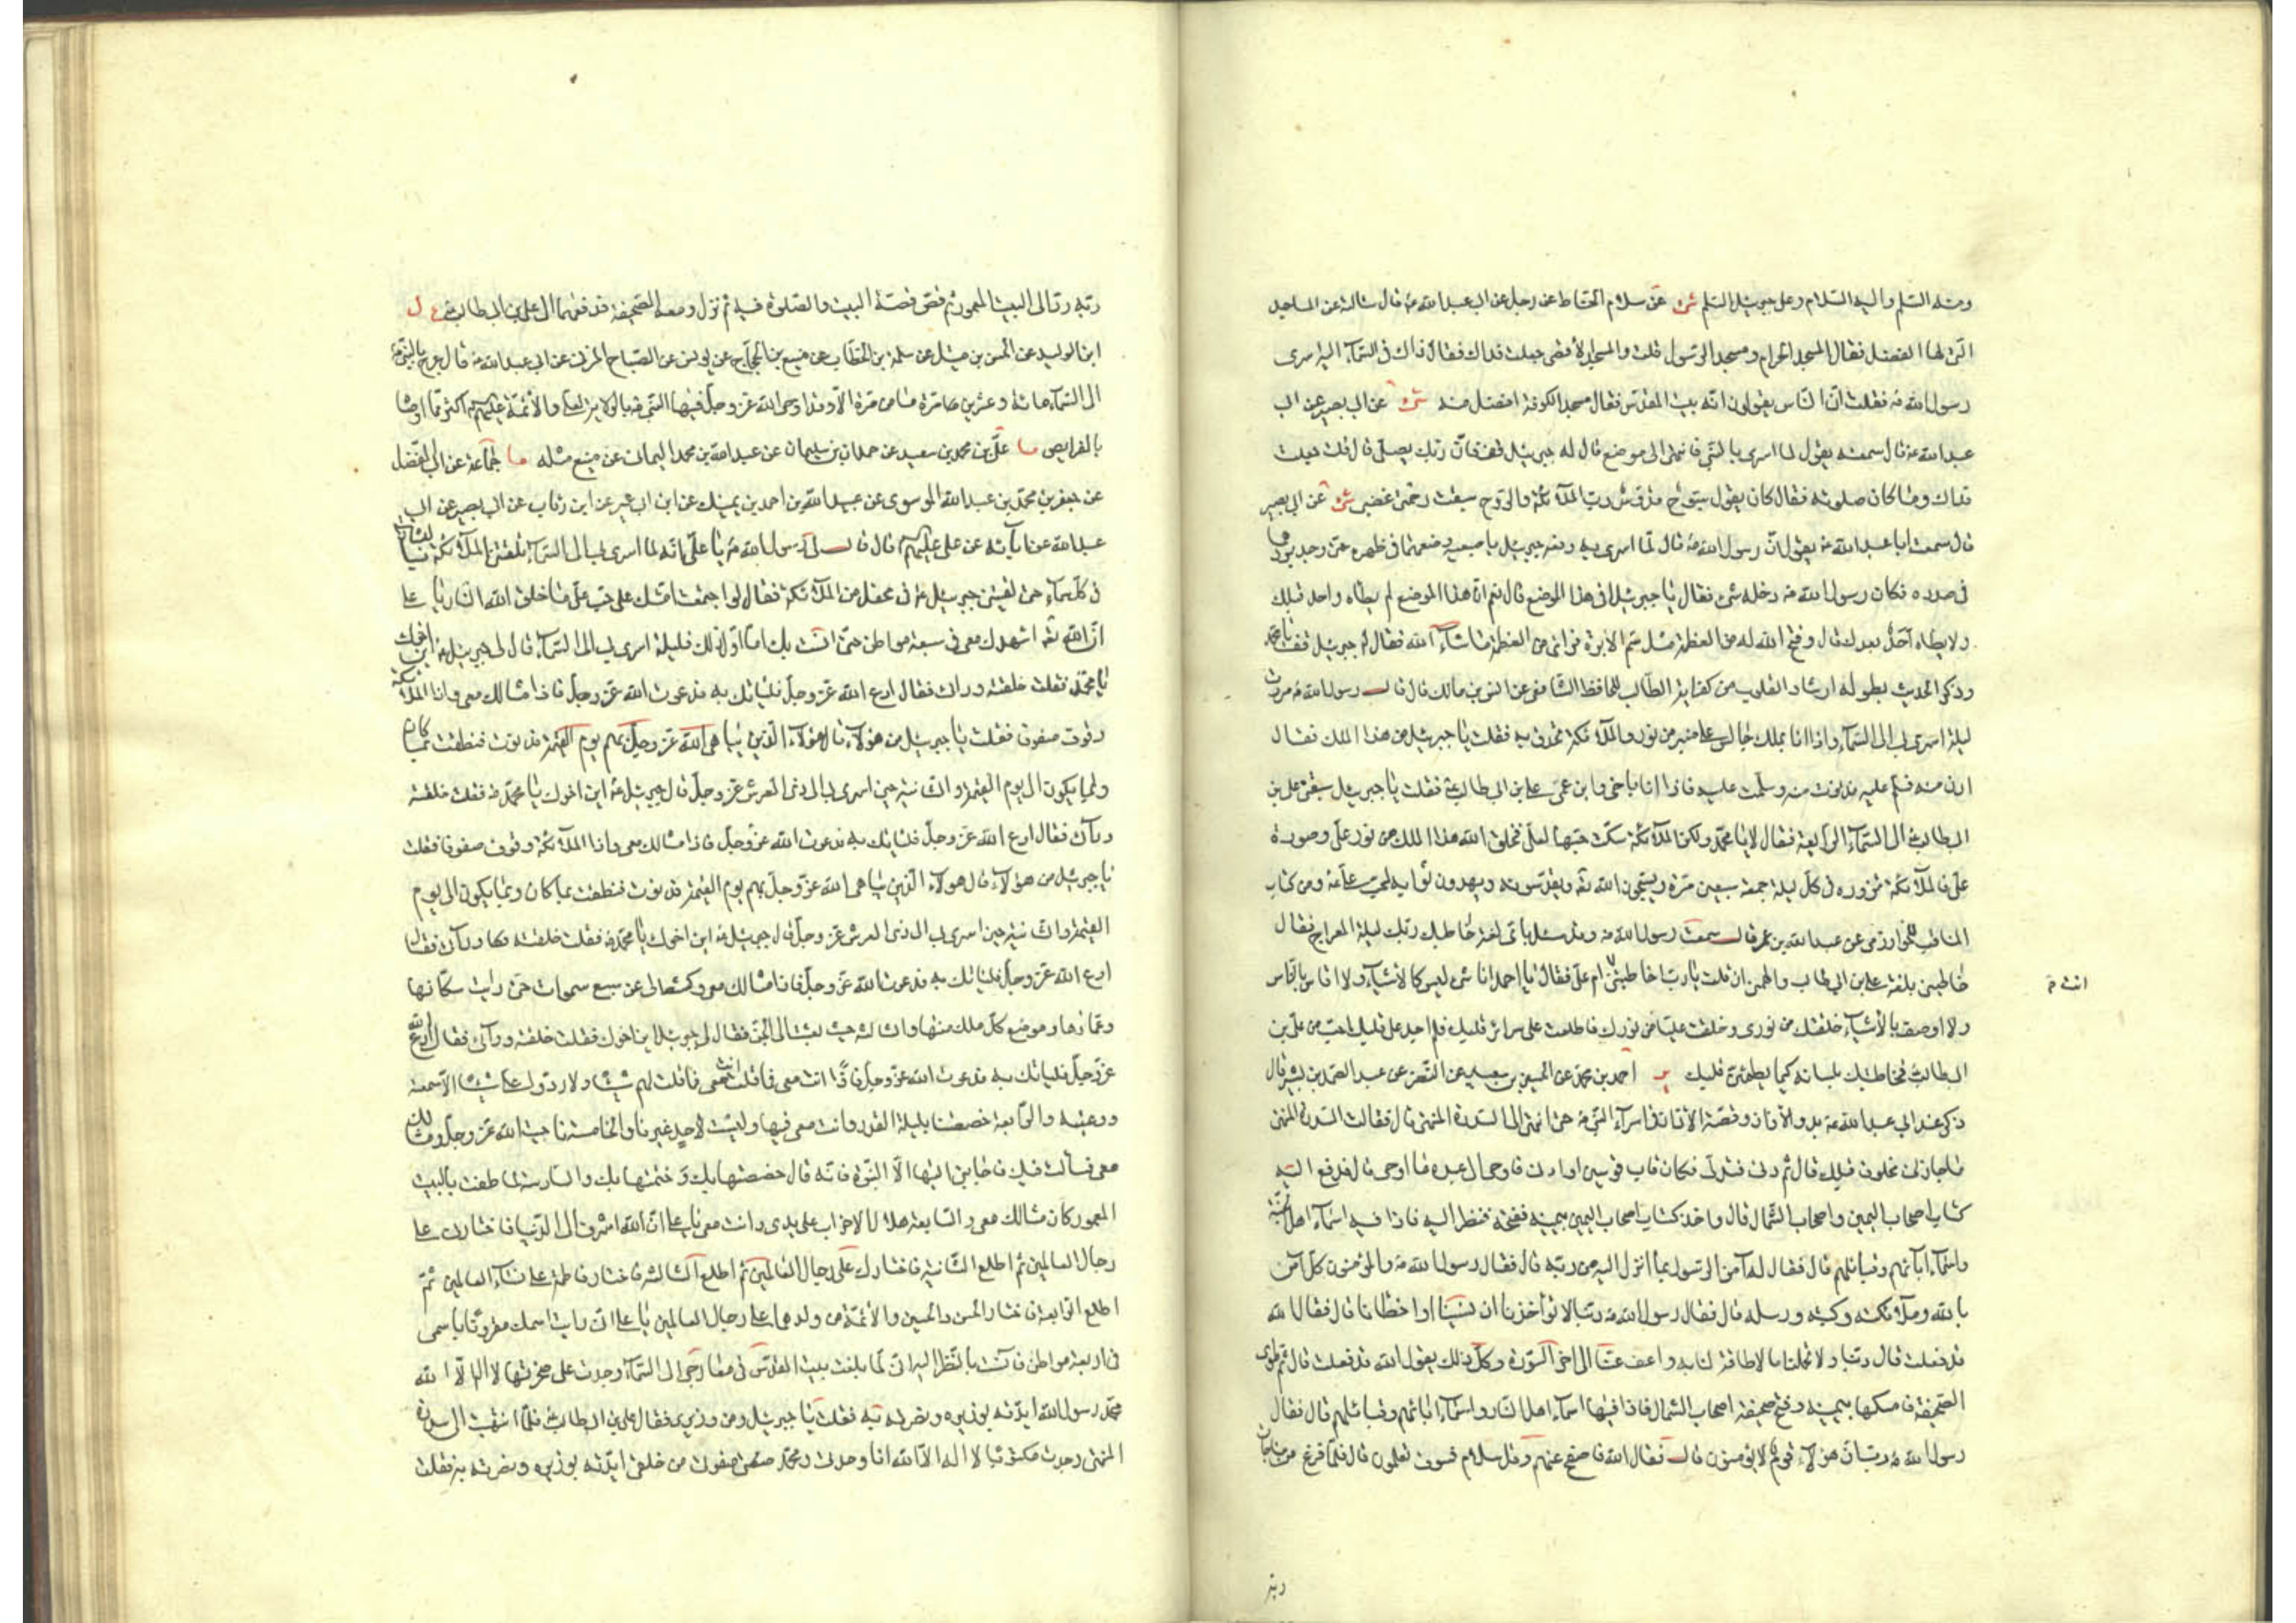 ومنه السّلم واليه السّلام وعلى جبرئيل السّلم شى عن سلام الحنّاط عن رجل عن ابى عبد الله ع قال سالته عن المساجد
التى لها الفضل فقال المسجد الحرام ومسجد الرّسول قلت والمسجد الاقصى جعلت فداك فقال ذاك فى السّمآء اليه اسرى
رسول الله ص فقلت انّ النّاس يقولون انّه بيت المقدّس فقال مسجد الكوفة افضل منه شى عن ابى بصير عن ابى
عبد الله ع قال سمعته يقول لما اسرى بالنّبى فانتهى الى موضع قال له جبرئيل قف فانّ ربّك يصلّى قال قلت جعلت
فداك وما كان صلوته فقال كان يقول سبّوح قدّوس ربّ الملآئكة والرّوح سبقت رحمتى غضبى شى عن ابى بصير
قال سمعت ابا عبد الله ع يقول انّ رسول الله ص قال لمّا اسرى به رفعه جبرئيل باصبعيه وضعهما فى ظهره حتى وجد بردهما
فى صدره فكان رسول الله ص دخله شئ فقال يا جبرئيل افى هذا الموضع قال نعم انّ هذا الموضع لم يطاه واحد قبلك
ولا يطاه احد بعدك قال وفتح الله له من العظمة مثل سمّ الابرة فراى من العظمة ماشآء الله فقال له جبرئيل قف يا محمّد
وذكر الحديث بطوله ارشاد القلوب من كفاية الطّالب للحافظ الشّافعى عن انس بن مالك قال قال رسول الله ص مررت
ليلة اسرى بى الى السّمآء واذا انا بملك جالس على منبر من نور والملآئكة تحدق به فقلت يا جبرئيل من هذا الملك فقال
ادن منه فسلّم عليه فدنوت منه وسلّمت عليه فاذا انا باخى وابن عمّى على بن ابى طالب ع فقلت يا جبرئيل سبقنى على بن
ابى طالب ع الى السّمآء الرّابعة فقال لا يا محمّد ولكن الملآئكة شكت حبّها لعلى فخلق الله هذا الملك من نور على صورة
على فالملآئكة تزوره فى كلّ ليلة جمعة سبعين مرّة ويسبّحون الله تع ويقدّسونه ويهدون ثوابه لمحبّ على ع ومن كتاب
المناقب للخوارزمى عن عبد الله بن عمر قال سمعت رسول الله ص وقد سئل باىّ لغة خاطبك ربّك ليلة المعراج فقال
خاطبنى بلغة على بن ابى طالب والهمنى ان قلت يا ربّ خاطبتنى ام على فقال يا احمد انا شئ ليس كالاشيآء ولا اقاس بالنّاس
انت خ
ولا اوصف بالاشيآء خلقتك من نورى وخلقت عليّا من نورك فاطلعت على سرائر قلبك فلم اجد على قلبك احبّ من على بن
ابى طالب ع فخاطبتك بلسانه كيما يطمئنّ قلبك ير احمد بن محمّد عن الحسين بن سعيد عن النّضر عن عبد الصّمد بن بشير قال
ذكر عند ابى عبد الله ع بدو الاذان وقصّة الاذان فى اسرآء النّبى ص حتى انتهى الى السّدرة المنتهى قال فقالت السّدرة المنتهى
ما جازنى مخلوق قبلك قال ثم دنى فتدلّى فكان قاب قوسين او ادنى فاوحى الى عبده ما اوحى قال فدفع اليه
كتاب اصحاب اليمين واصحاب الشّمال قال واخذ كتاب اصحاب اليمين بيمينه ففتحه فنظر اليه فاذا فيه اسمآء اهل الجنّة
واسمآء ابآئهم وقبائلهم قال فقال له آمن الرّسول بما انزل اليه من ربّه قال فقال رسول الله ص والمؤمنون كلّ آمن
بالله وملآئكته وكتبه ورسله قال فقال رسول الله ص ربّنا لا تؤاخذنا ان نسينا او اخطانا قال فقال الله
قد فعلت قال ربّنا ولا تحملنا ما لا طاقة لنا به واعف عنّا الى اخر السّورة وكلّ ذلك يقول الله قد فعلت قال ثم طوى
الصّحيفة فامسكها بيمينه وفتح صحيفة اصحاب الشّمال فاذا فيها اسمآء اهل النّار واسمآء ابائهم وقبائلهم قال فقال
رسول الله ص ربّ انّ هؤلآء قوم لا يؤمنون قال فقال الله فاصفح عنهم وقل سلام فسوف تعلمون قال فلمّا فرغ من مناجات
ربّه
ربّه ردّ الى البيت المعمور ثم قصّ قصّة البيت والصّلوة فيه ثم نزل ومعه الصّحيفتان فدفعهما الى على بن ابى طالب ع ل
ابن الوليد عن الحسن بن متيل عن سلمة بن الخطّاب عن منيع بن الحجّاج عن يونس عن الصّباح المزنى عن ابى عبد الله ع قال عرج بالنّبى ص
الى السّمآء مائة وعشرين مرّة ما من مرّة الاّ وقد اوحى الله عزّ وجلّ فيها النّبى ص بالولاية لعلى والائمّة عليهم اكثر ممّا اوصاه
بالفرايض ما على بن محمد بن سعيد عن حمدان بن سليمان عن عبد الله بن محمد اليمانى عن منيع مثله ما جماعة عن ابى المفضّل
عن جعفر بن محمّد بن عبد الله الموسوى عن عبيد الله بن احمد بن نهيك عن ابن ابى عمير عن ابن رئاب عن ابى بصير عن ابى
عبد الله عن ابآئه عن على عليهم قال قال لى رسول الله ص يا على انّه لما اسرى بى الى السّمآء تلقتنى الملآئكة بالبشارات
فى كلّ سمآء حتى لقينى جبرئيل ع فى محفل من الملآئكة فقال لو اجتمعت امّتك على حبّ على ما خلق الله النّار يا على
انّ الله تع اشهدك معى فى سبعة مواطن حتّى انست بك امّا اوّل ذلك فليلة اسرى بى الى السّمآء قال لى جبرئيل ع اين اخوك
يا محمّد فقلت خلفته وراى فقال ادع الله عزّ وجلّ فلياتك به فدعوت الله عزّ وجلّ فاذا مثالك معى واذا الملآئكة
وقوف صفوف فقلت يا جبرئيل من هؤلآء قال هؤلآء الّذين يباهى الله عزّ وجلّ بهم يوم القيمة فدنوت فنطقت بما كان
وبما يكون الى يوم القيمة والثّانية حين اسرى بى الى ذى العرش عزّ وجلّ قال جبرئيل ع اين اخوك يا محمّد ص فقلت خلفته
ورآى فقال ادع الله عزّ وجلّ فلياتك به فدعوت الله عزّ وجلّ فاذا مثالك معى واذا الملآئكة وقوف صفوفا فقلت
يا جبرئيل من هؤلآء قال هؤلآء الّذين يباهى الله عزّ وجلّ بهم يوم القيمة فدنوت فنطقت بما كان وبما يكون الى يوم
القيمة والثّانية حين اسرى بى الى ذى العرش عزّ وجلّ قال جبرئيل ع اين اخوك يا محمّد ص فقلت خلفته ورآى فقال
ادع الله عزّ وجلّ فلياتك به فدعوت الله عزّ وجلّ فاذا مثالك معى وكشط لى عن سبع سموات حتى رايت سكّانها
وعمّارها وموضع كلّ ملك منها والثّالثة حيث بعثت الى الجنّ فقال لى جبرئيل اين اخوك فقلت خلفته ورآى فقال ادع الله
عزّ وجلّ فلياتك به فدعوت الله عزّ وجلّ فاذا انت معى فما قلت لهم شيئا ولا ردّوا علىّ شيئا الاّ سمعته
ووعيته والرّابعة خصصنا بليلة القدر وانت معى فيها وليست لاحد غيرنا والخامسة ناجيت الله عزّ وجلّ ومثالك
معى فسألت فيك فاجابنى اليها الاّ النّبوّة فانّه قال خصصتها بك وختمتها بك والسّادسة لما طفت بالبيت
المعمور كان مثالك معى والسّابعة هلاك الاحزاب على يدى وانت معى يا على انّ الله اشرف الى الدّنيا فاختارنى على
رجال العالمين ثم اطلع الثّانية فاختارك على رجال العالمين ثم اطلع الثّالثة فاختار فاطمة على نسآء العالمين ثمّ
اطلع الرّابعة فاختار الحسن والحسين والائمّة من ولدهما على رجال العالمين يا على انّى رايت اسمك مقرونا باسمى
فى اربعة مواطن فآنست بالنّظر اليه انّى لمّا بلغت بيت المقدّس فى معارجى الى السّمآء وجدت على صخرتها لا اله الاّ الله
محمّد رسول الله ايّدته بوزيره ونصرته به فقلت يا جبرئيل ومن وزيرى فقال على بن ابى طالب ع فلمّا انتهيت الى سدرة
المنتهى وجدت مكتوبا لا اله الاّ الله انا وحدى ومحمّد صفوتى من خلقى ايّدته بوزيره ونصرته به فقلت